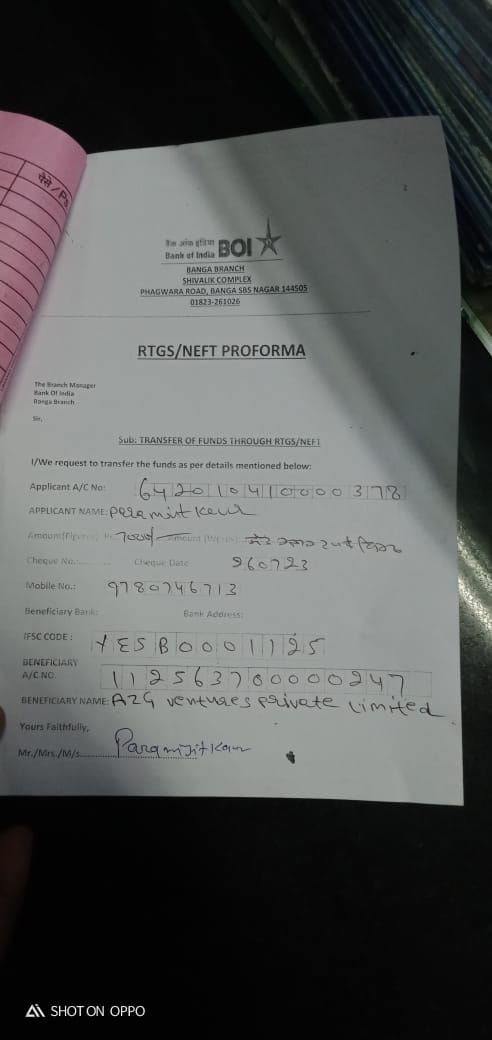 पैसे/Ps.
बैंक ऑफ इंडिया
Bank of India BOI
BANGA BRANCH
SHIVALIK COMPLEX
PHAGWARA ROAD, BANGA SBS NAGAR 144505
01823-261026
RTGS/NEFT PROFORMA
The Branch Manager
Bank Of India
Banga Branch
Sir,
Sub: TRANSFER OF FUNDS THROUGH RTGS/NEFT
I/We request to transfer the funds as per details mentioned below:
Applicant A/C No: 642010410000378
APPLICANT NAME: Peramjit Kaur
Amount(Figures) Rs. Amount (Words):
Cheque No.:....... Cheque Date 260723
Mobile No.: 9780746713
Beneficiary Bank: Bank Address:
IFSC CODE : YESB0001125
BENEFICIARY
A/C NO. 112563700000247
BENEFICIARY NAME: A2G ventures private Limited
Yours Faithfully,
Mr./Mrs./M/s. Paramjit Kaur
SHOT ON OPPO